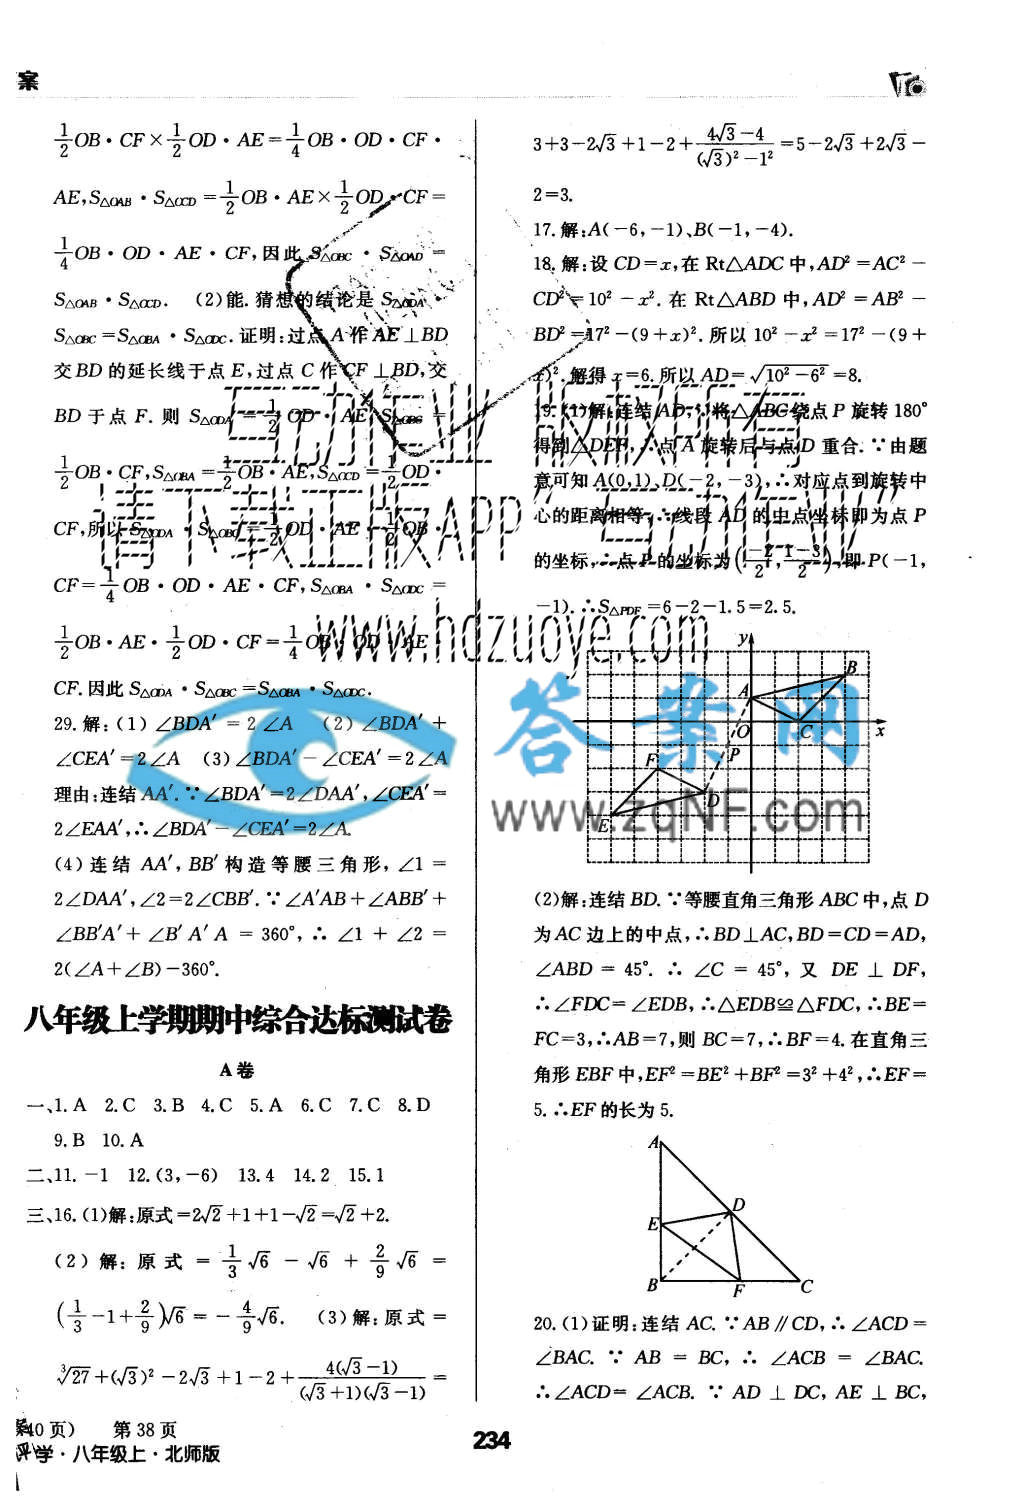 案
$\frac{1}{2}$OB·CF×$\frac{1}{2}$OD·AE=$\frac{1}{4}$OB·OD·CF·
AE,S△OAB·S△OCD=$\frac{1}{2}$OB·AE×$\frac{1}{2}$OD·CF=
$\frac{1}{4}$OB·OD·AE·CF,因此 S△OBC·S△OAD=
S△OAB·S△OCD. (2)能.猜想的结论是 S△ODA·
S△OBC=S△OBA·S△ODC.证明:过点A作AE⊥BD
交BD的延长线于点E,过点C作CF⊥BD,交
BD于点F.则 S△ODA=$\frac{1}{2}$OD·AE,S△OBC=
$\frac{1}{2}$OB·CF,S△OBA=$\frac{1}{2}$OB·AE,S△OCD=$\frac{1}{2}$OD·
CF,所以 S△ODA·S△OBC=$\frac{1}{2}$OD·AE·$\frac{1}{2}$OB·
CF=$\frac{1}{4}$OB·OD·AE·CF,S△OBA·S△ODC=
$\frac{1}{2}$OB·AE·$\frac{1}{2}$OD·CF=$\frac{1}{4}$OB·OD·AE·
CF.因此 S△ODA·S△OBC=S△OBA·S△ODC.
29.解:(1)∠BDA′=2∠A (2)∠BDA′+
∠CEA′=2∠A (3)∠BDA′-∠CEA′=2∠A
理由:连结AA′.∵∠BDA′=2∠DAA′,∠CEA′=
2∠EAA′,∴∠BDA′-∠CEA′=2∠A.
(4)连结AA′,BB′构造等腰三角形,∠1=
2∠DAA′,∠2=2∠CBB′.∵∠A′AB+∠ABB′+
∠BB′A′+∠B′A′A=360°,∴∠1+∠2=
2(∠A+∠B)-360°.
八年级上学期期中综合达标测试卷
A卷
一、1.A 2.C 3.B 4.C 5.A 6.C 7.C 8.D
9.B 10.A
二、11.-1 12.(3,-6) 13.4 14.2 15.1
三、16.(1)解:原式=2√2+1+1-√2=√2+2.
(2)解:原式=$\frac{1}{3}$√6-√6+$\frac{2}{9}$√6=
($\frac{1}{3}$-1+$\frac{2}{9}$)√6=-$\frac{4}{9}$√6. (3)解:原式=
∛27+(√3)²-2√3+1-2+$\frac{4(√3-1)}{(√3+1)(√3-1)}$=
3+3-2√3+1-2+$\frac{4√3-4}{(√3)²-1²}$=5-2√3+2√3-
2=3.
17.解:A(-6,-1)、B(-1,-4).
18.解:设CD=x,在Rt△ADC中,AD²=AC²-
CD²=10²-x².在Rt△ABD中,AD²=AB²-
BD²=17²-(9+x)².所以10²-x²=17²-(9+
x)².解得x=6.所以AD=√10²-6²=8.
19.(1)解:连结AD,∵将△ABC绕点P旋转180°
得到△DEF,∴点A旋转后与点D重合.∵由题
意可知A(0,1)、D(-2,-3),∴对应点到旋转中
心的距离相等,∴线段AD的中点坐标即为点P
的坐标,∴点P的坐标为($\frac{-2}{2}$,$\frac{1-3}{2}$),即P(-1,
-1).∴S△PDF=6-2-1.5=2.5.
y
B
A
O
C
x
P
F
D
E
(2)解:连结BD.∵等腰直角三角形ABC中,点D
为AC边上的中点,∴BD⊥AC,BD=CD=AD,
∠ABD=45°.∴∠C=45°,又DE⊥DF,
∴∠FDC=∠EDB,∴△EDB≌△FDC,∴BE=
FC=3,∴AB=7,则BC=7,∴BF=4.在直角三
角形EBF中,EF²=BE²+BF²=3²+4²,∴EF=
5.∴EF的长为5.
A
D
E
B
F
C
20.(1)证明:连结AC.∵AB∥CD,∴∠ACD=
∠BAC.∵AB=BC,∴∠ACB=∠BAC.
∴∠ACD=∠ACB.∵AD⊥DC,AE⊥BC,
40页) 第38页
学·八年级上·北师版
234
www.hdzuoye.com
答案网
www.zqNF.com